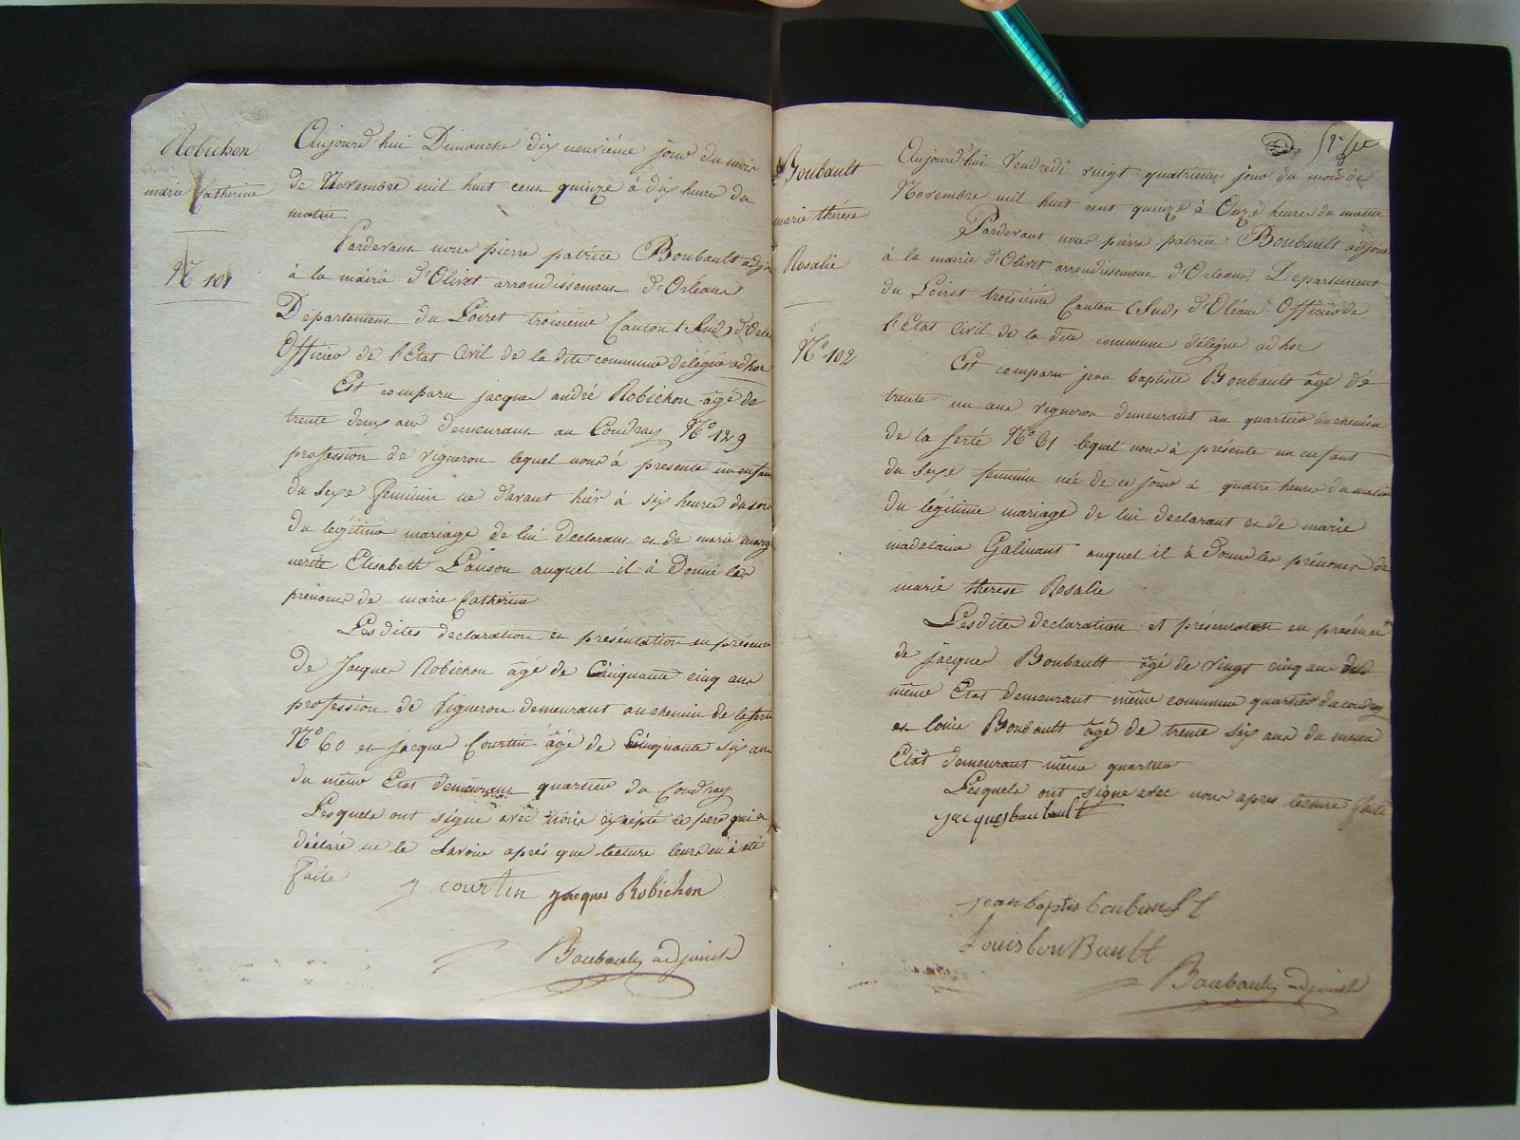 Robichon
marie Catherine
N° 101
Aujourd'hui Dimanche dix neuvième jour du mois
de Novembre mil huit cent quinze à dix heure du
matin
Pardevant nous pierre patrice Boubault adj
à la mairie d'Olivet arrondissement d'Orléans
Département du Loiret troisième Canton (Sud) d'Orle
Officier de l'Etat Civil de la dite commune délégué ad hoc
Est comparu jacque andré Robichon âgé de
trente deux ans demeurant au Coudray N° 129
profession de vigneron lequel nous à presenté un enfant
du sexe feminin né d'avant hier à six heures du soir
du légitime mariage de lui declarant et de marie marg
uerite Elisabeth Lanson auquel il à Donné les
prénoms de marie Catherine
Lesdites declaration et présentation en présence
de Jacques Robichon âgé de Cinquante cinq ans
profession de vigneron demeurant au chemin de la ferté
N° 60 et jacque Courtin âgé de Cinquante six ans
du même Etat demeurant quartier du Coudray
Lesquels ont signé avec nous excepté le père qui a
déclaré ne le savoir après que lecture leur en à été
faite
j courtin jacques Robichon
Boubault adjoint
Boubault
marie thérèse
Rosalie
N° 102
Aujourd'hui Vendredi vingt quatrieme jour du mois de
Novembre mil huit cent quinze à Onze heures du matin
Pardevant nous pierre patrice Boubault adjoint
à la mairie d'Olivet arrondissement d'Orléans Departement
du Loiret troisième Canton (Sud) d'Oléans Officier de
l'Etat Civil de la dite commune délégué ad hoc
Est comparu jean baptiste Boubault âgé de
trente un ans vigneron demeurant au quartier du chemin
de la ferté N° 61 lequel nous à présenté un enfant
du sexe feminin née de ce jour à quatre heure du matin
du légitime mariage de lui declarant et de marie
madelaine Galinant auquel il à donné les prénoms de
marie therese Rosalie
Lesdites declaration et présentation en présence
de jacque Boubault âgé de vingt cinq ans du
même Etat demeurant même commune quartier du coudray
et louis Boubault âgé de trente six ans du meme
Etat demeurant même quartier
Lesquels ont signé avec nous apres lecture faite
jacques boubault
jean baptis boubault
Louis bou Bault
Boubault adjoint